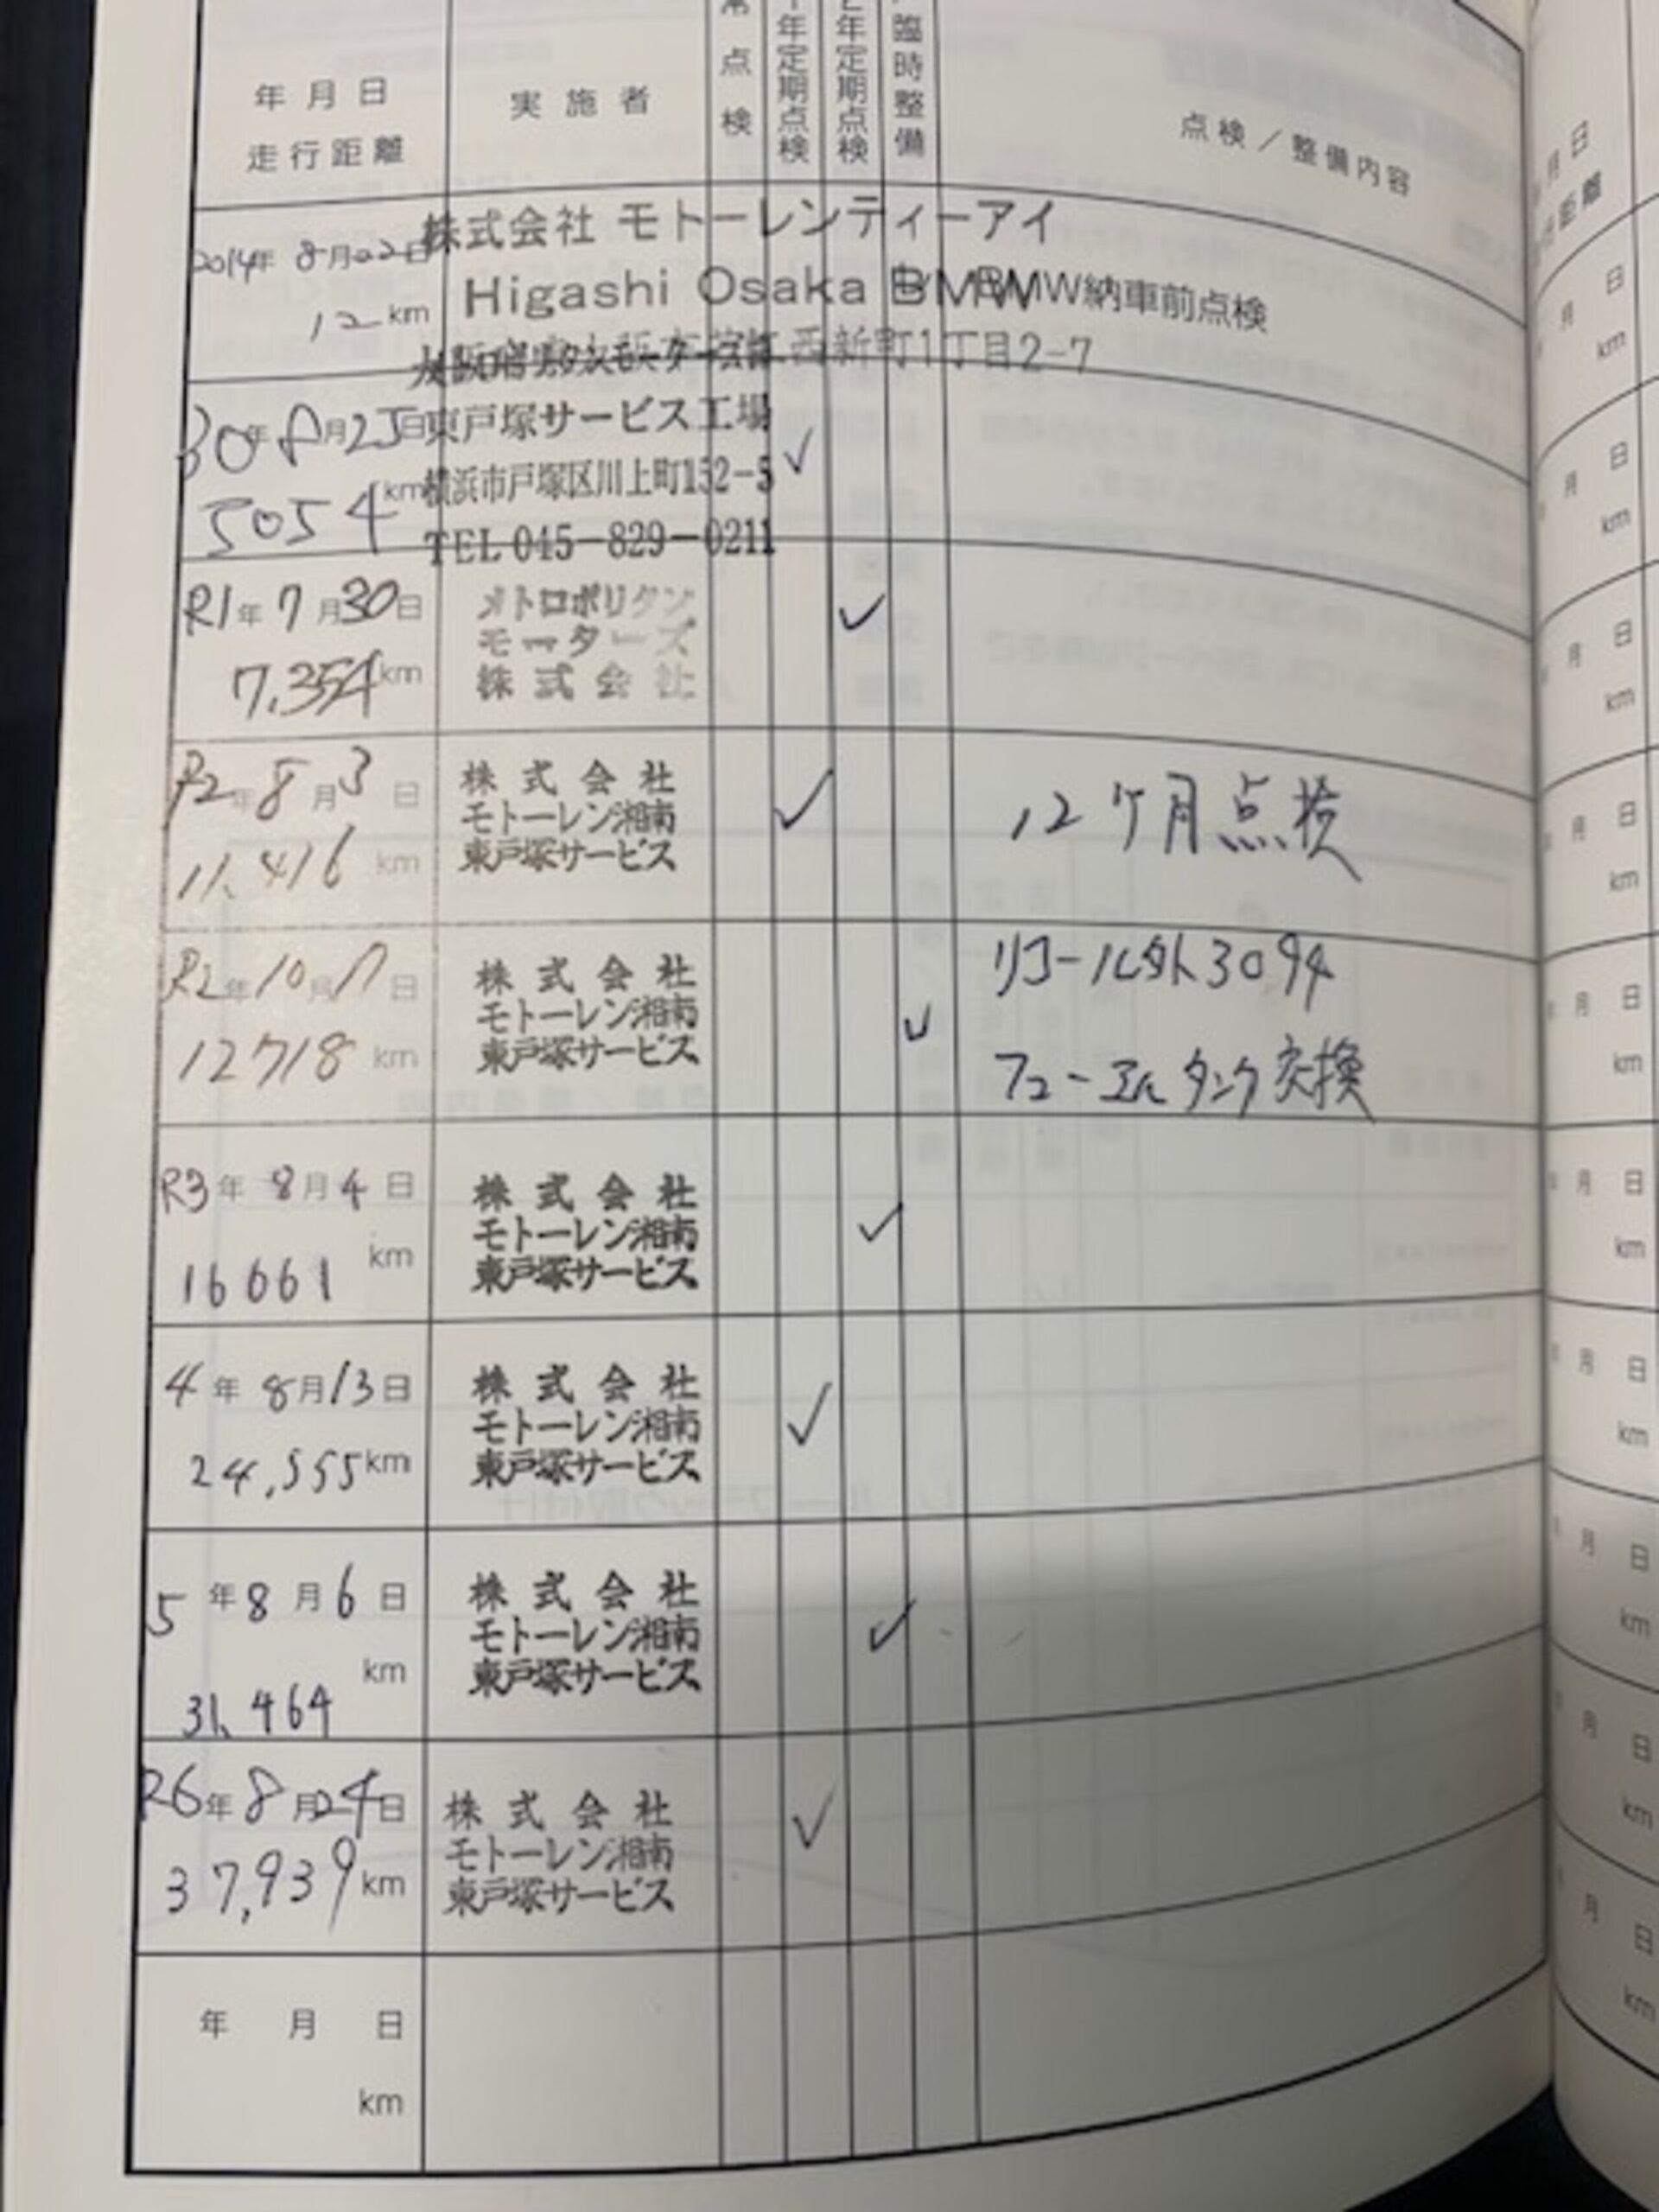 年月日
走行距離
実施者
常点検
1年定期点検
2年定期点検
臨時整備
点検／整備内容
2014年 8月22日
12km
株式会社 モトーレンティーアイ
Higashi Osaka BMW
BMW納車前点検
西新町1丁目2-7
30年 8月25日
5054km
東戸塚サービス工場
横浜市戸塚区川上町152-5
TEL 045-829-0211
✓
R1年 7月30日
7,354km
メトロポリタン
モーターズ
株式会社
✓
R2年 8月3日
11,416km
株式会社
モトーレン湘南
東戸塚サービス
✓
12ヶ月点検
R2年 10月17日
12718km
株式会社
モトーレン湘南
東戸塚サービス
✓
リコール外3094
フューエルタンク交換
R3年 8月4日
16661km
株式会社
モトーレン湘南
東戸塚サービス
✓
4年 8月13日
24,555km
株式会社
モトーレン湘南
東戸塚サービス
✓
5年 8月6日
31,464km
株式会社
モトーレン湘南
東戸塚サービス
✓
R6年 8月24日
37,939km
株式会社
モトーレン湘南
東戸塚サービス
✓
年 月 日
km